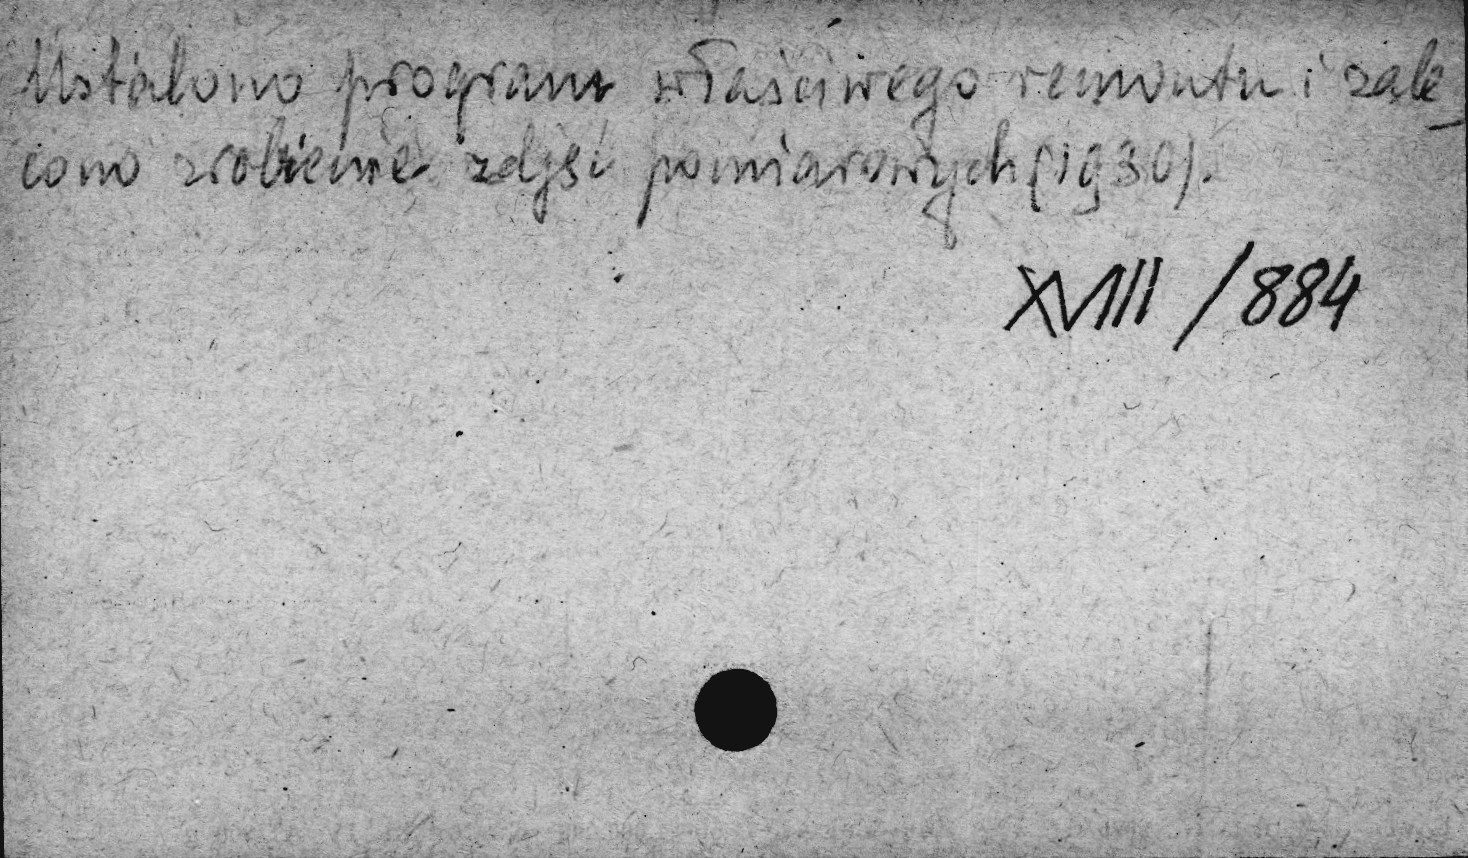 Ustalono program właściwego remontu i zale_
cono zrobienie zdjęć pomiarowych (1930).
XVIII / 884